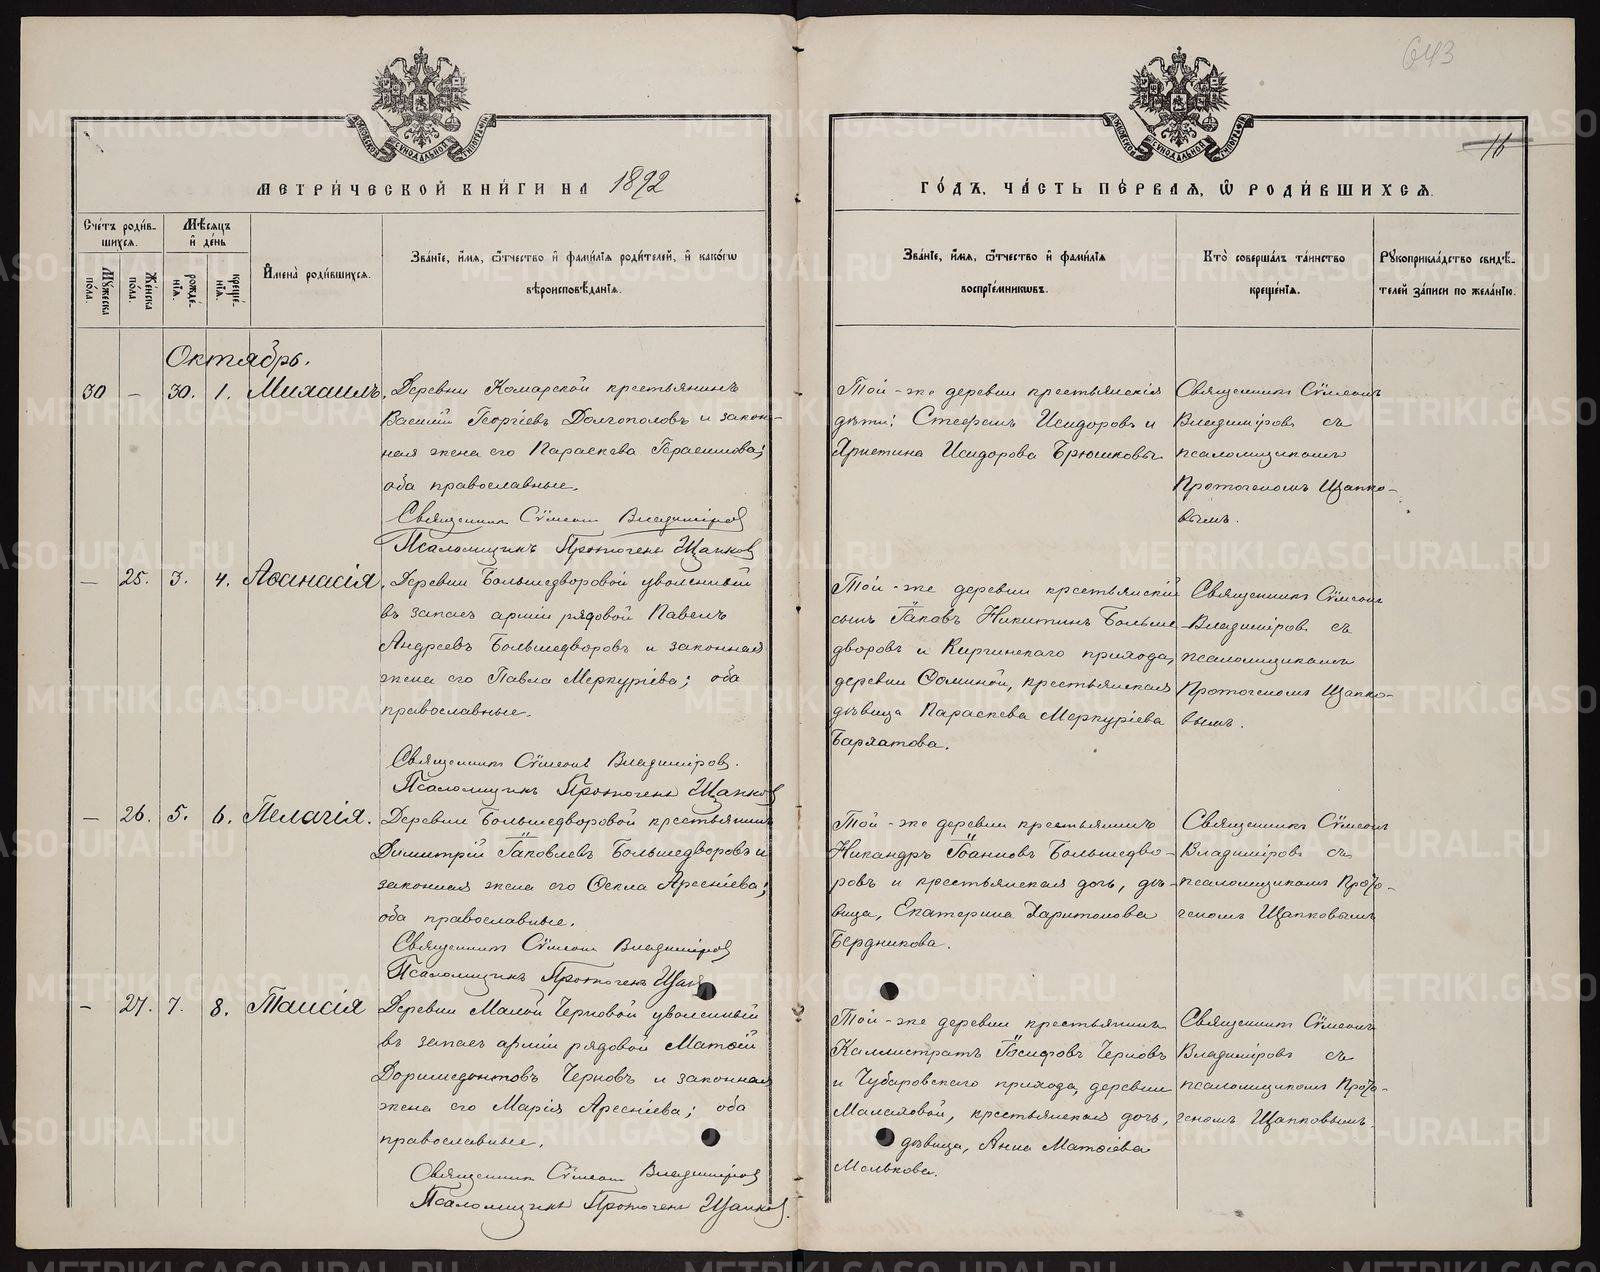 643
16
МОСКОВСКОЙ СѴНОДАЛЬНОЙ ТИПОГРАФІИ
МОСКОВСКОЙ СѴНОДАЛЬНОЙ ТИПОГРАФІИ
МЕТРИ́ЧЕСКОЙ КНИ́ГИ НА 1892
ГО́ДЪ, ЧА́СТЬ ПЕ́РВАЯ, Ѡ РОДИ́ВШИХСЯ.
Сче́тъ роди́в-
шихся.
Мѣ́сяцъ
и̂ де́нь
Мꙋ́жеска
по́ла.
Же́нска
по́ла.
рожде́-
нїя.
креще́-
нїя.
И҆мена̀ роди́вшихся.
Зва́нїе, и҆́мя, ѻ҆́тчество и҆ фами́лїя роди́телей, и҆ како́гѡ
вѣроисповѣ́данїя.
Зва́нїе, и҆́мя, ѻ҆́тчество и҆ фами́лїя
воспрїе́мникѡвъ.
Кто̀ соверша́лъ та́инство
креще́нїя.
Рꙋкоприкла́дство свидѣ́-
телей за́писи по жела́нїю.
Октябрь.
30 – 30. 1. Михаилъ.
Деревни Комарской крестьянинъ
Василій Георгіевъ Долгополовъ и закон-
ная жена его Параскева Герасимова;
оба православные.
Священникъ Сѵмеонъ Владиміровъ
Псаломщикъ Протогенъ Щапковъ
Той-же деревни крестьянскія
дѣти: Стефанъ Исидоровъ и
Христина Исидорова Брюшковы.
Священникъ Сѵмеонъ
Владиміровъ съ
псаломщикомъ
Протогеномъ Щапко-
вымъ.
– 25. 3. 4. Аѳанасія.
Деревни Большедворовой уволенный
въ запасъ арміи рядовой Павелъ
Андреевъ Большедворовъ и законная
жена его Павла Меркуріева; оба
православные.
Священникъ Сѵмеонъ Владиміровъ.
Псаломщикъ Протогенъ Щапковъ
Той-же деревни крестьянскій
сынъ Іаковъ Никитинъ Больше-
дворовъ и Киргинскаго прихода,
деревни Ѳоминой, крестьянская
дѣвица Параскева Меркуріева
Бархатова.
Священникъ Сѵмеонъ
Владиміровъ съ
псаломщикомъ
Протогеномъ Щапко-
вымъ.
– 26. 5. 6. Пелагія.
Деревни Большедворовой крестьянинъ
Димитрій Іаковлевъ Большедворовъ и
законная жена его Ѳекла Арсеніева;
оба православные.
Священникъ Сѵмеонъ Владиміровъ
Псаломщикъ Протогенъ Щапковъ
Той-же деревни крестьянинъ
Никандръ Іоанновъ Большедво-
ровъ и крестьянская дочь, дѣ-
вица, Екатерина Харитонова
Бердникова.
Священникъ Сѵмеонъ
Владиміровъ съ
псаломщикомъ Прото-
геномъ Щапковымъ
– 27. 7. 8. Таисія
Деревни Малой Черновой уволенный
въ запасъ арміи рядовой Матѳій
Доримедонтовъ Черновъ и законная
жена его Марія Арсеніева; оба
православные.
Священникъ Сѵмеонъ Владиміровъ
Псаломщикъ Протогенъ Щапковъ.
Той-же деревни крестьянинъ
Каллистратъ Іосифовъ Черновъ
и Чубаровскаго прихода, деревни
Малаховой, крестьянская дочь,
дѣвица, Анна Матѳіева
Мелькова.
Священникъ Сѵмеонъ
Владиміровъ съ
псаломщикомъ Прото-
геномъ Щапковымъ.
METRIKI.GASO-URAL.RU